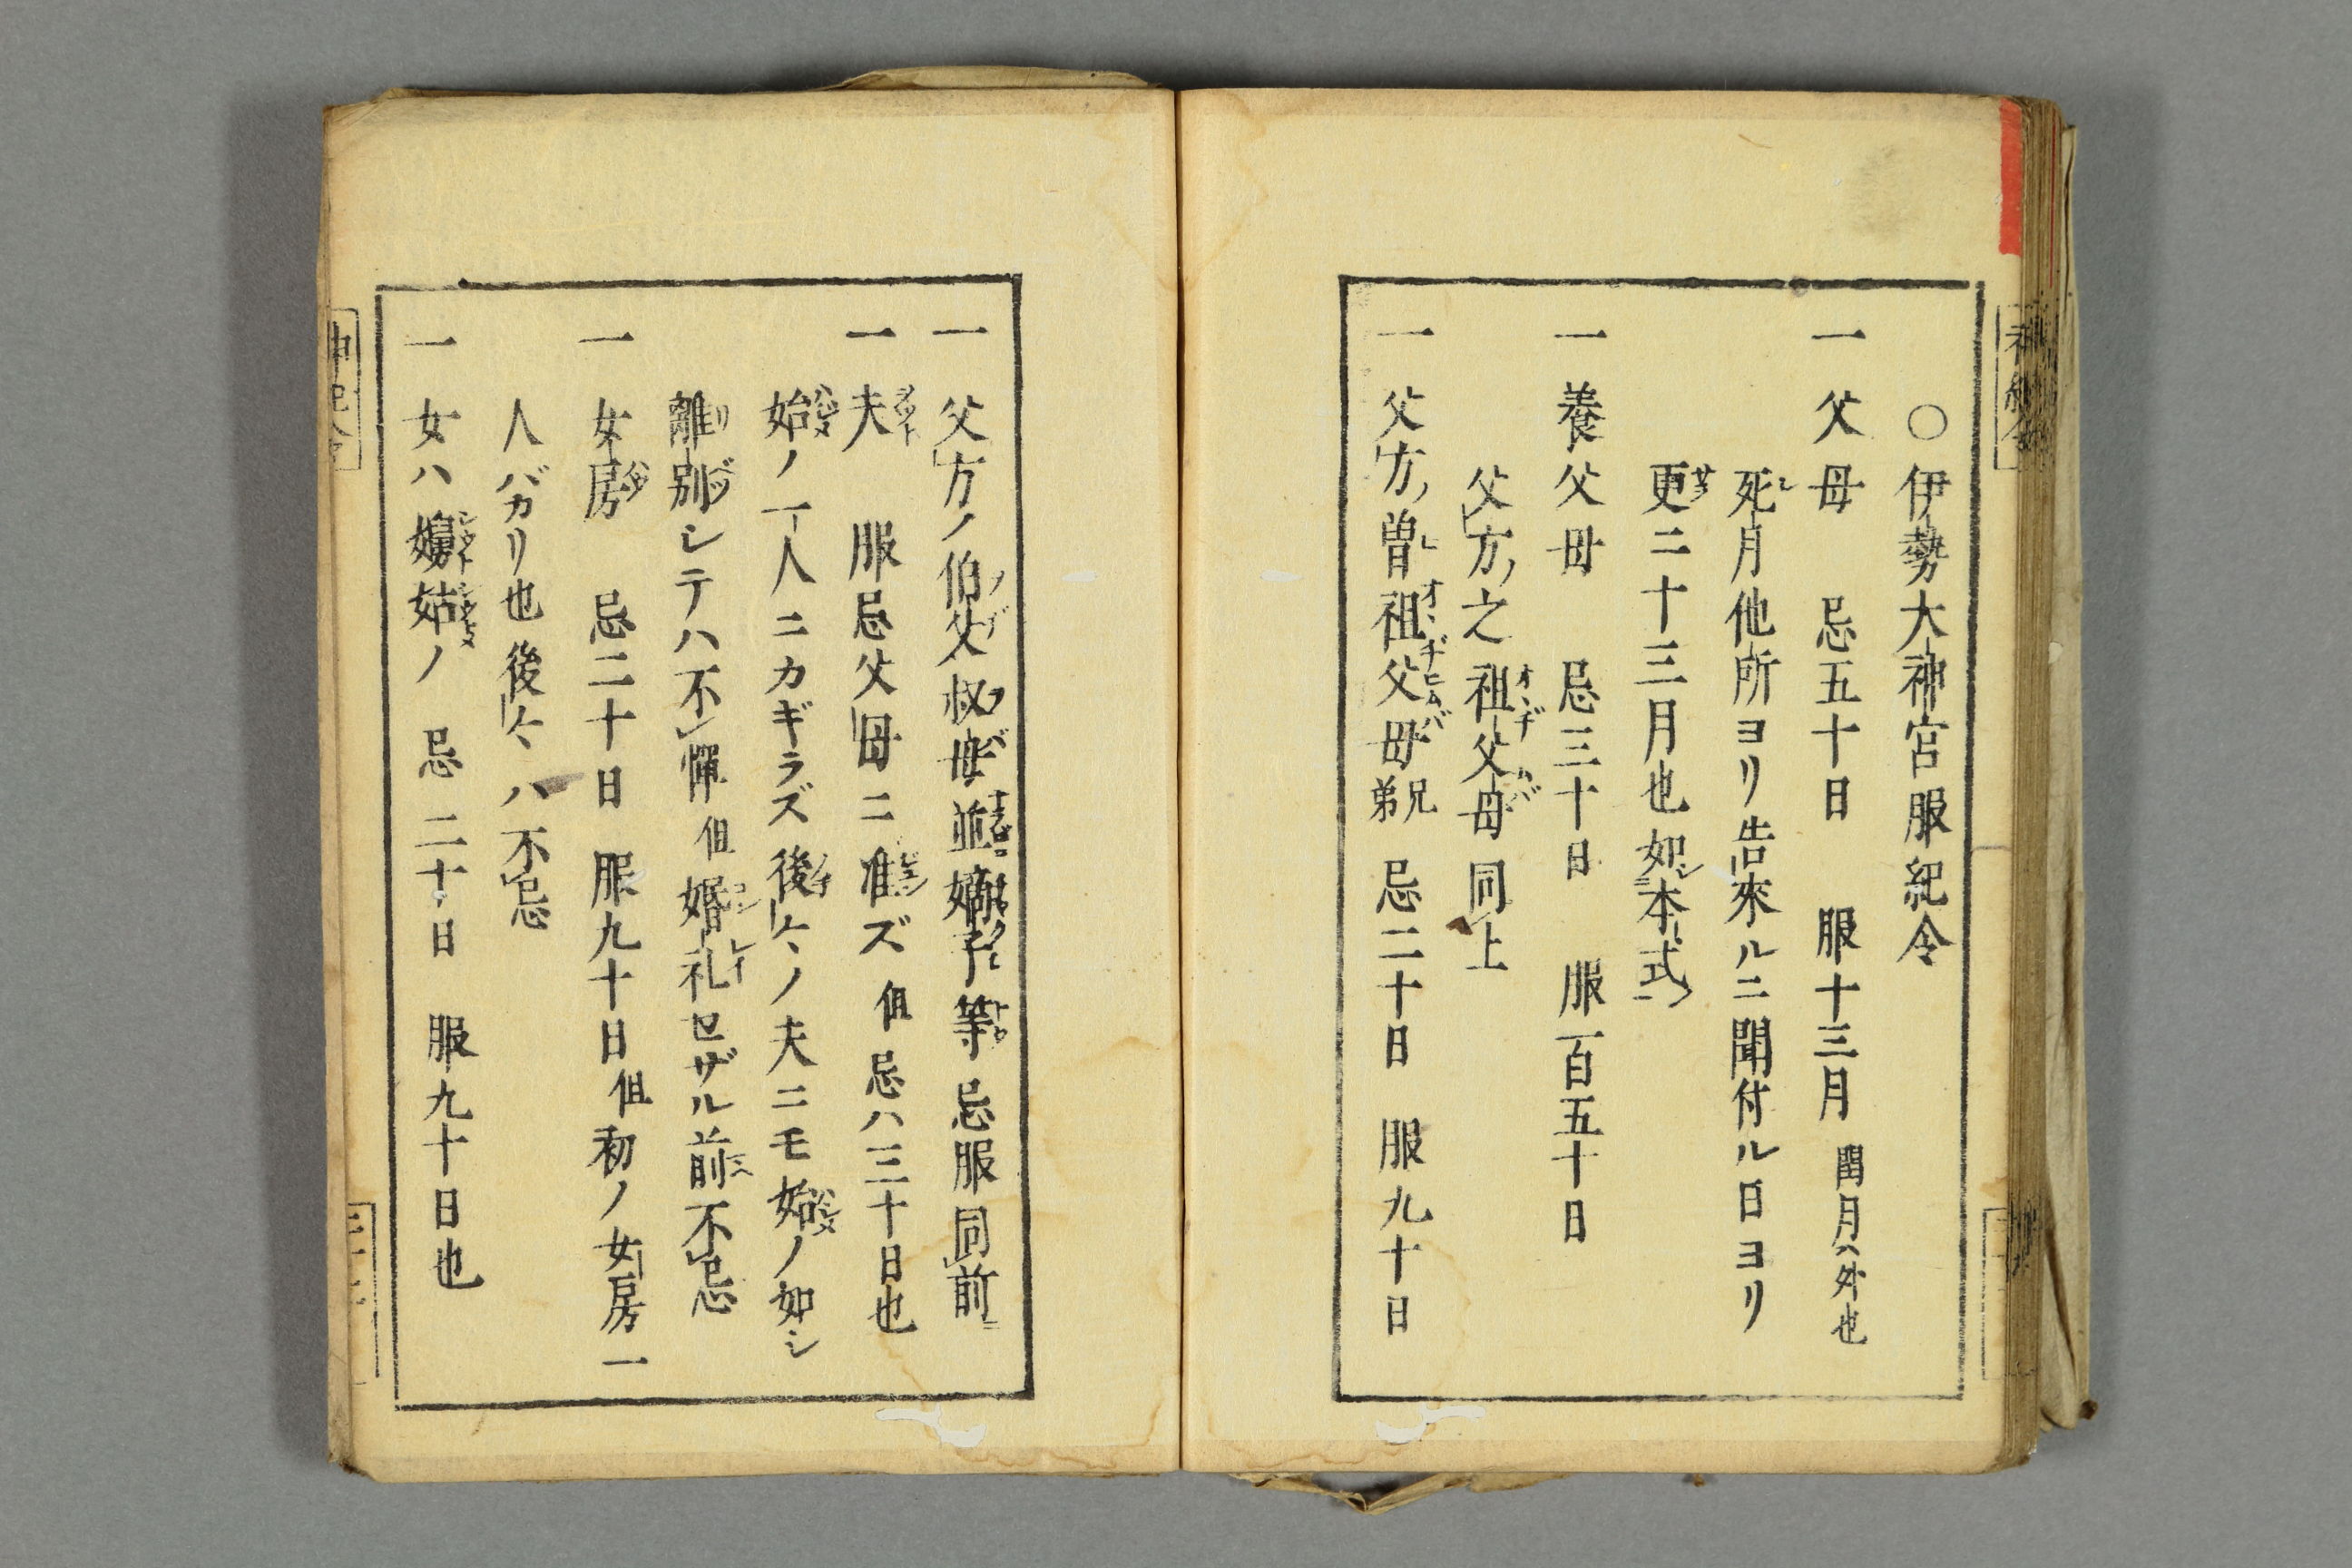 ○伊勢大神宮服紀令
一 父母 忌五十日 服十三月 閏月ハ外也
死月他所ヨリ告來ルニ聞付ル日ヨリ
更二十三月也如本式
一 養父母 忌三十日 服百五十日
父方ノ之祖父母同上
一 父方ノ曽祖父母兄弟 忌二十日 服九十日
一 父方ノ伯父叔母並嫡子等忌服同前
一 夫 服忌父母ニ准ズ但忌ハ三十日也
始ノ一人ニカギラズ後々ノ夫ニモ始ノ如シ
離別シテハ不憚但婚礼セザル前不忌
一 女房 忌二十日 服九十日但初ノ女房一
人バガリ也後々ハ不忌
一 女ハ姑ノ 忌二十日 服九十日也